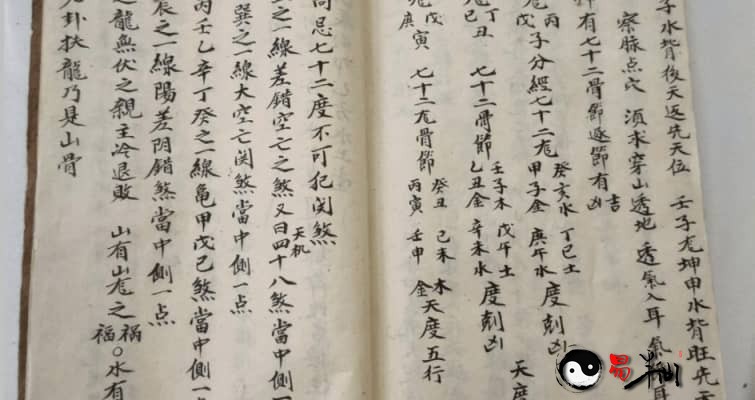 子水背後天返先天位 壬子龙坤申水背旺先天
察脉点穴 須求穿山透地 透氣入耳氣 耳
有七十二骨節逐節有吉凶
丙戊子分經七十二龙 甲子金 癸亥水 庚午水 丁巳土 度尅凶 天度
丁己丑 七十二骨節 乙丑金 壬子木 辛未水 戊午土 度尅凶
戊庚寅 七十二龙骨節 丙寅 癸丑 壬申 己未 木金天度五行
忌七十二度不可犯関煞
之一線差錯空亡之煞 又曰四十八煞當中側一
天机
巽之一線大空亡関煞當中側一点
丙壬乙辛丁癸之一線龟甲戊己煞當中側一点
辰之一線陽差阴錯煞當中側一点
之龍無伏之親主冷退敗 山有山龙之禍福○水有
卦扶龍乃是山骨
易